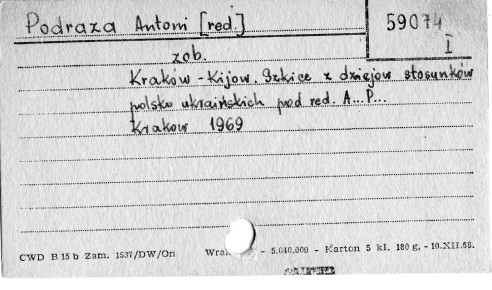 Podraza Antoni [red.]
59074
I
zob.
Kraków - Kijów. Szkice z dziejów stosunków
polsko ukraińskich pod red. A... P...
Kraków 1969
CWD B 15 b Zam. 1537/DW/On - 5.040.000 - Karton 5 kl. 180 g. - 10.XII.68.